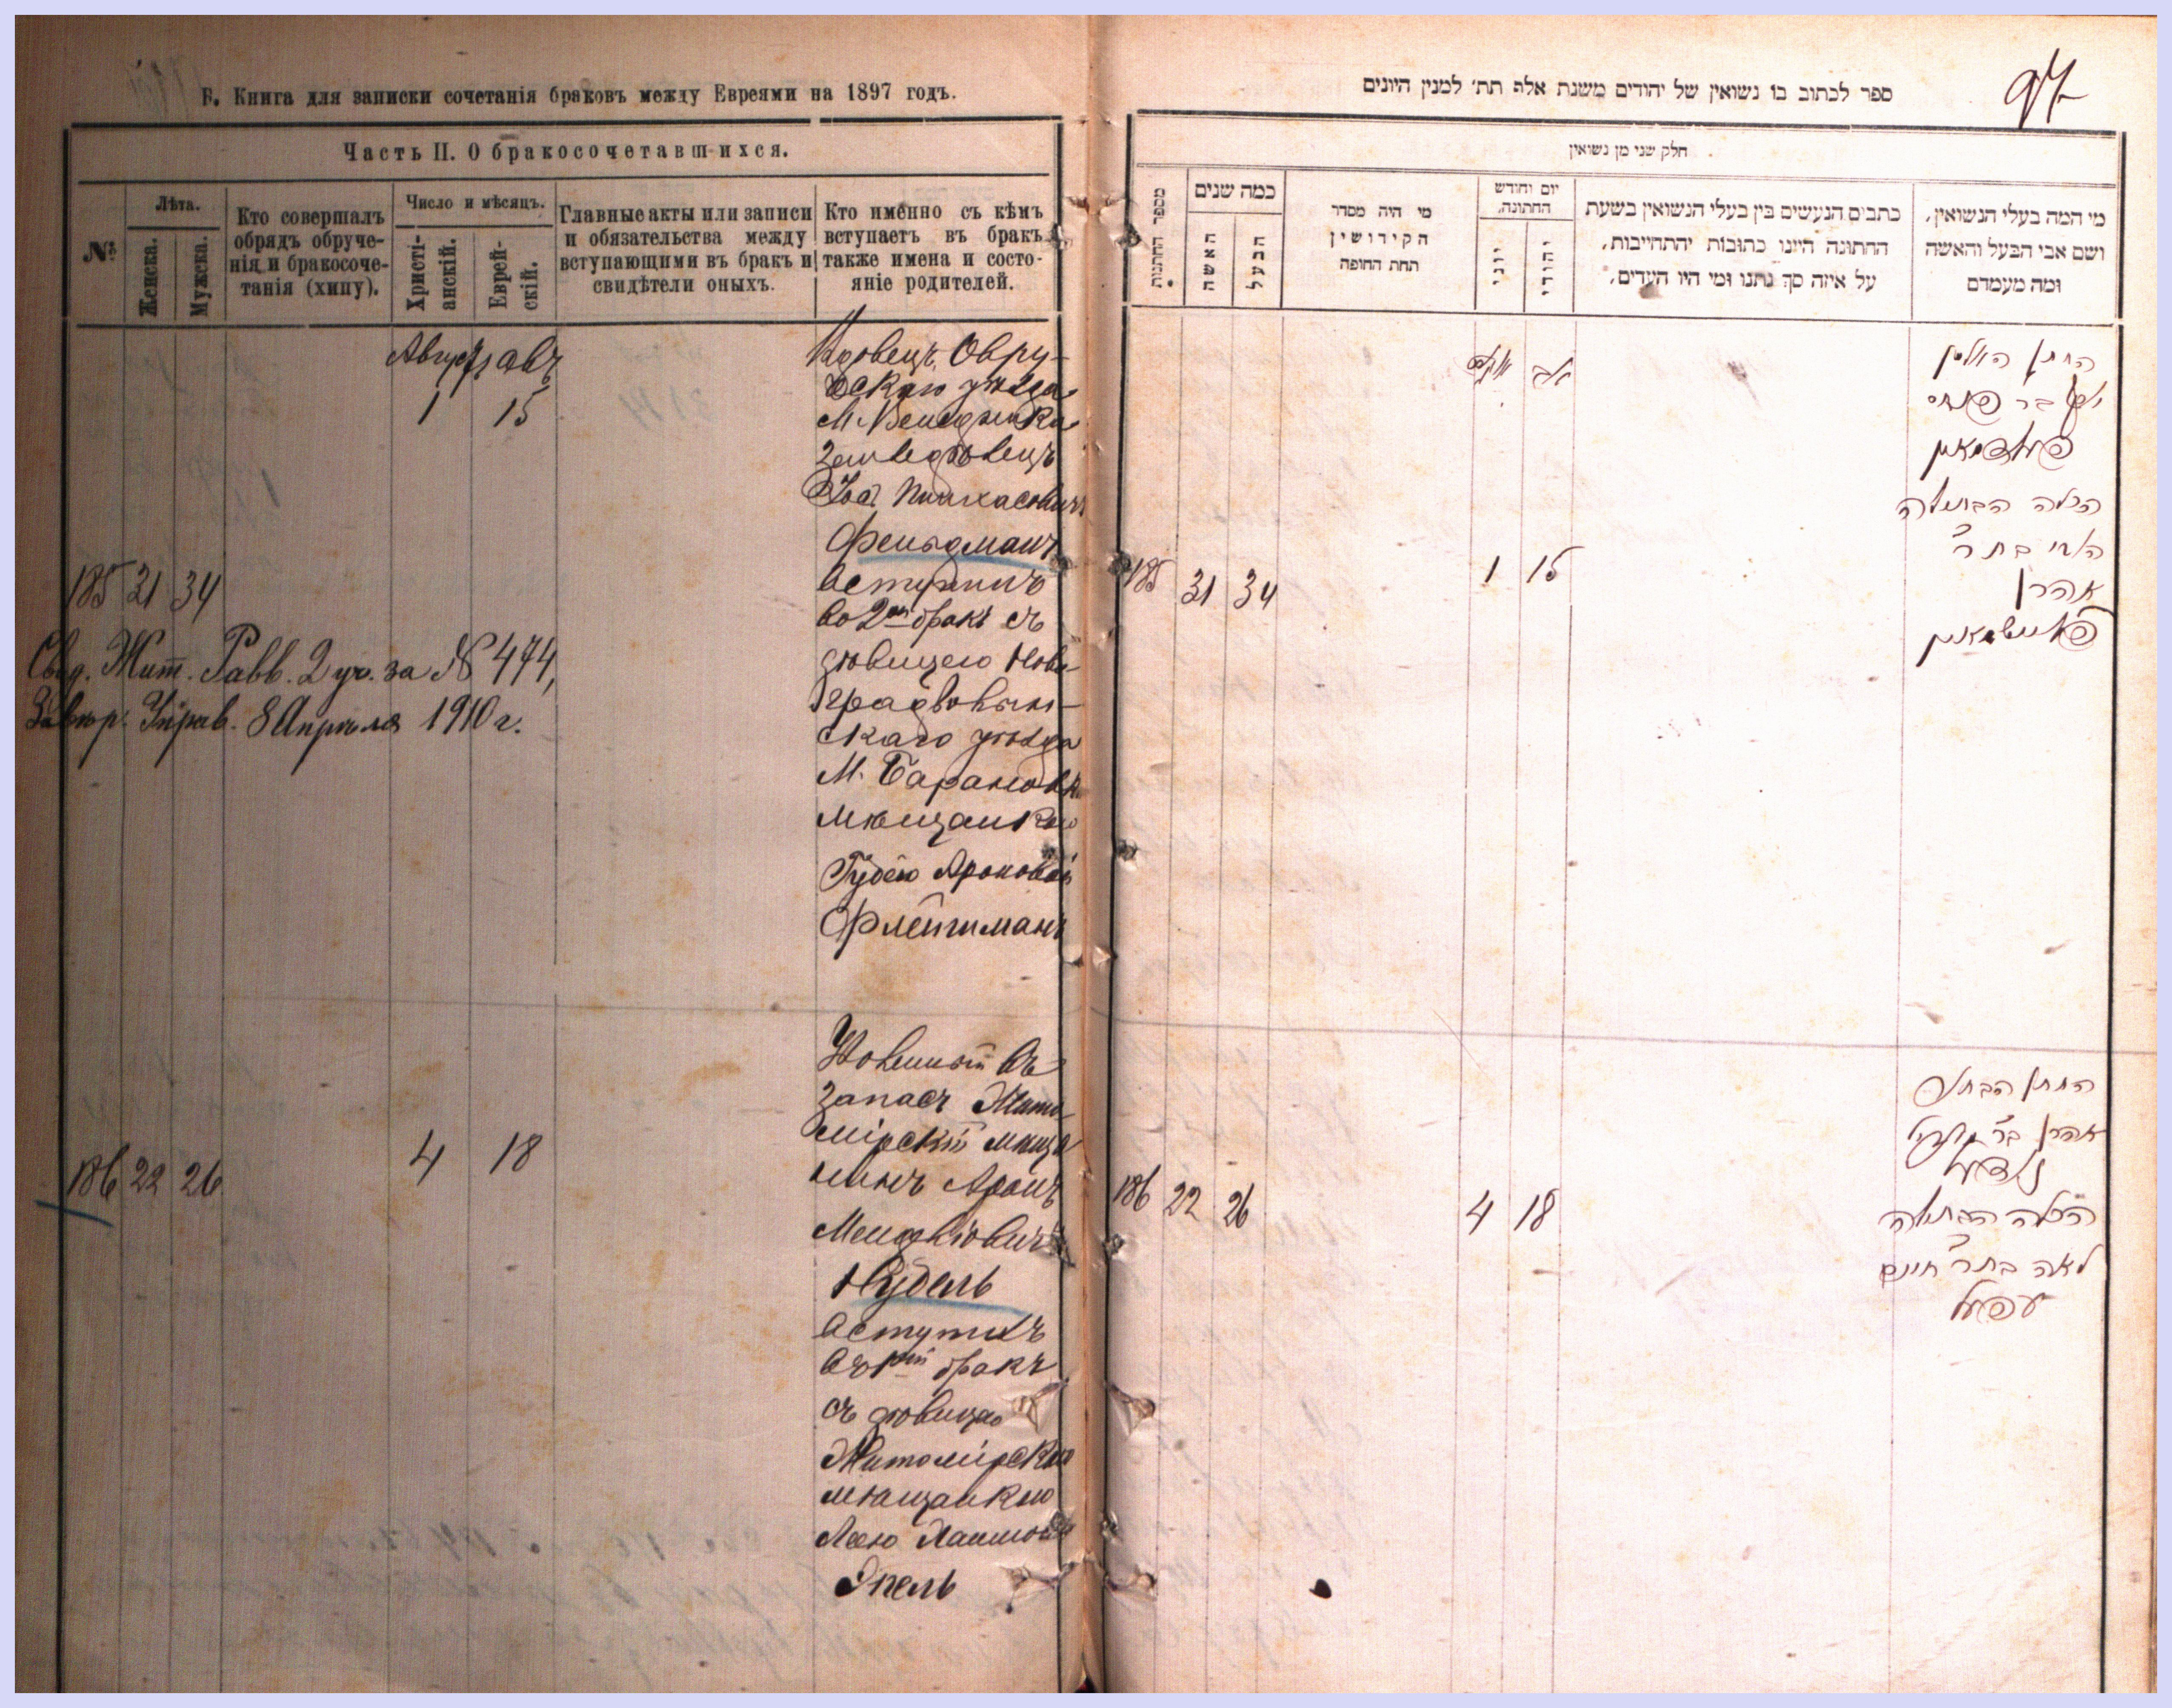 Б. Книга для записки сочетанія браковъ между Евреями на 1897 годъ.
Часть II. О бракосочетавшихся.
№
Лѣта.
Женска.
Мужска.
Кто совершалъ
обрядъ обруче-
нія и бракосоче-
танія (хипу).
Число и мѣсяцъ.
Христі-
анскій.
Еврей-
скій.
Главные акты или записи
и обязательства между
вступающими въ бракъ и
свидѣтели оныхъ.
Кто именно съ кѣмъ
вступаетъ въ бракъ
также имена и состо-
яніе родителей.
Августъ авъ
1 15
185 31 34
Вдовецъ Овру-
скаго уѣзда
М.
Пинхасовичъ
Фельдманъ
вступилъ
во 2ой бракъ съ
дѣвицею Ново-
градволын-
скаго уѣзда
М. Барановки
мѣщанкою
Ароновой
Флейшманъ
Свид. Жит. Равв. 2 уч. за № 474,
Завѣр. Управ. 8 Апрѣля 1910 г.
186 22 26
4 18
Уволенный въ
запасъ Жито-
мірскій мѣща-
нинъ Аронъ
Менделевичъ
Нудель
вступилъ
въ 1ый бракъ
съ дѣвицею
Житомірскою
мѣщанкою
Леею Хаимовой
Эпель
ספר לכתוב בו נשואין של יהודים משנת אלף תת׳ למנין היונים
97
חלק שני מן נשואין
מספר החתנות
כמה שנים
האשה
הבעל
מי היה מסדר
הקידושין
תחת החופה
יום וחודש
החתונה.
יוני
יהודי
כתבים הנעשים בין בעלי הנשואין בשעת
החתונה היינו כתובות והתחייבות,
על איזה סך נתנו ומי היו העדים.
מי המה בעלי הנשואין,
ושם אבי הבעל והאשה
ומה מעמדם
אב
185 31 34
1 15
החתן האלמן
בר פנחס
פעלדמאן
הכלה הבתולה
בת ר׳
אהרן
פליישמאן
186 22 26
4 18
החתן הבחור
אהרן בר
נודעל
הכלה הבתולה
לאה בת ר׳ חיים
עפעל